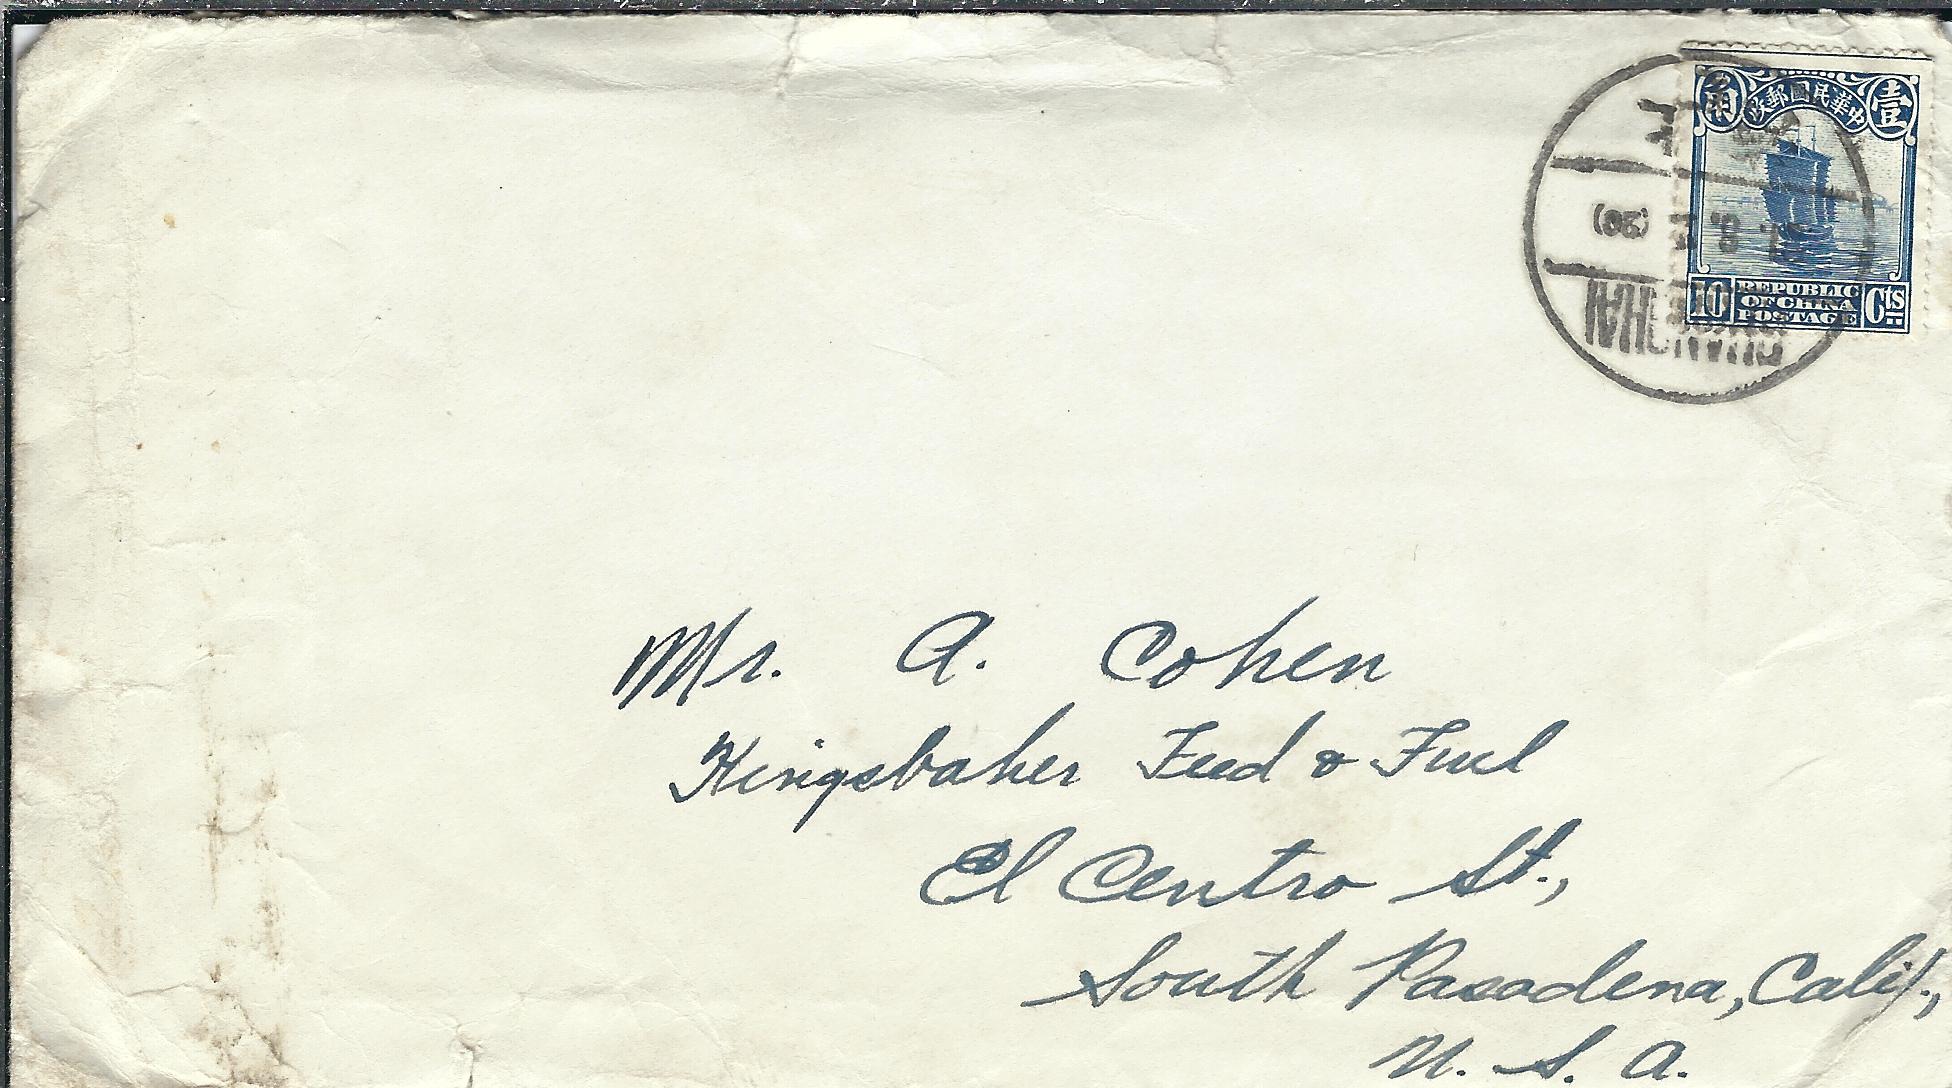 壹 中華民國郵政 角
上 海
(20)
SHANGHAI
10 REPUBLIC OF CHINA POSTAGE Cts
Mr. A. Cohen
Kingsbaker Feed & Fuel
El Centro St.,
South Pasadena, Calif.,
U. S. A.